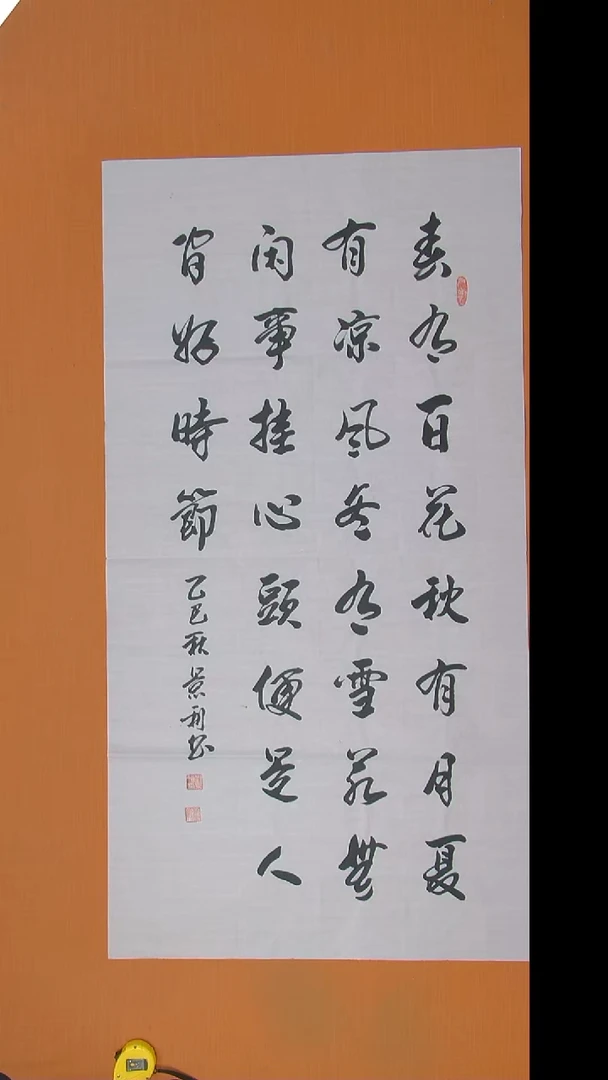 春有百花秋有月夏
有凉风冬有雪若無
闲事挂心頭便是人
间好時節
乙巳秋景利书